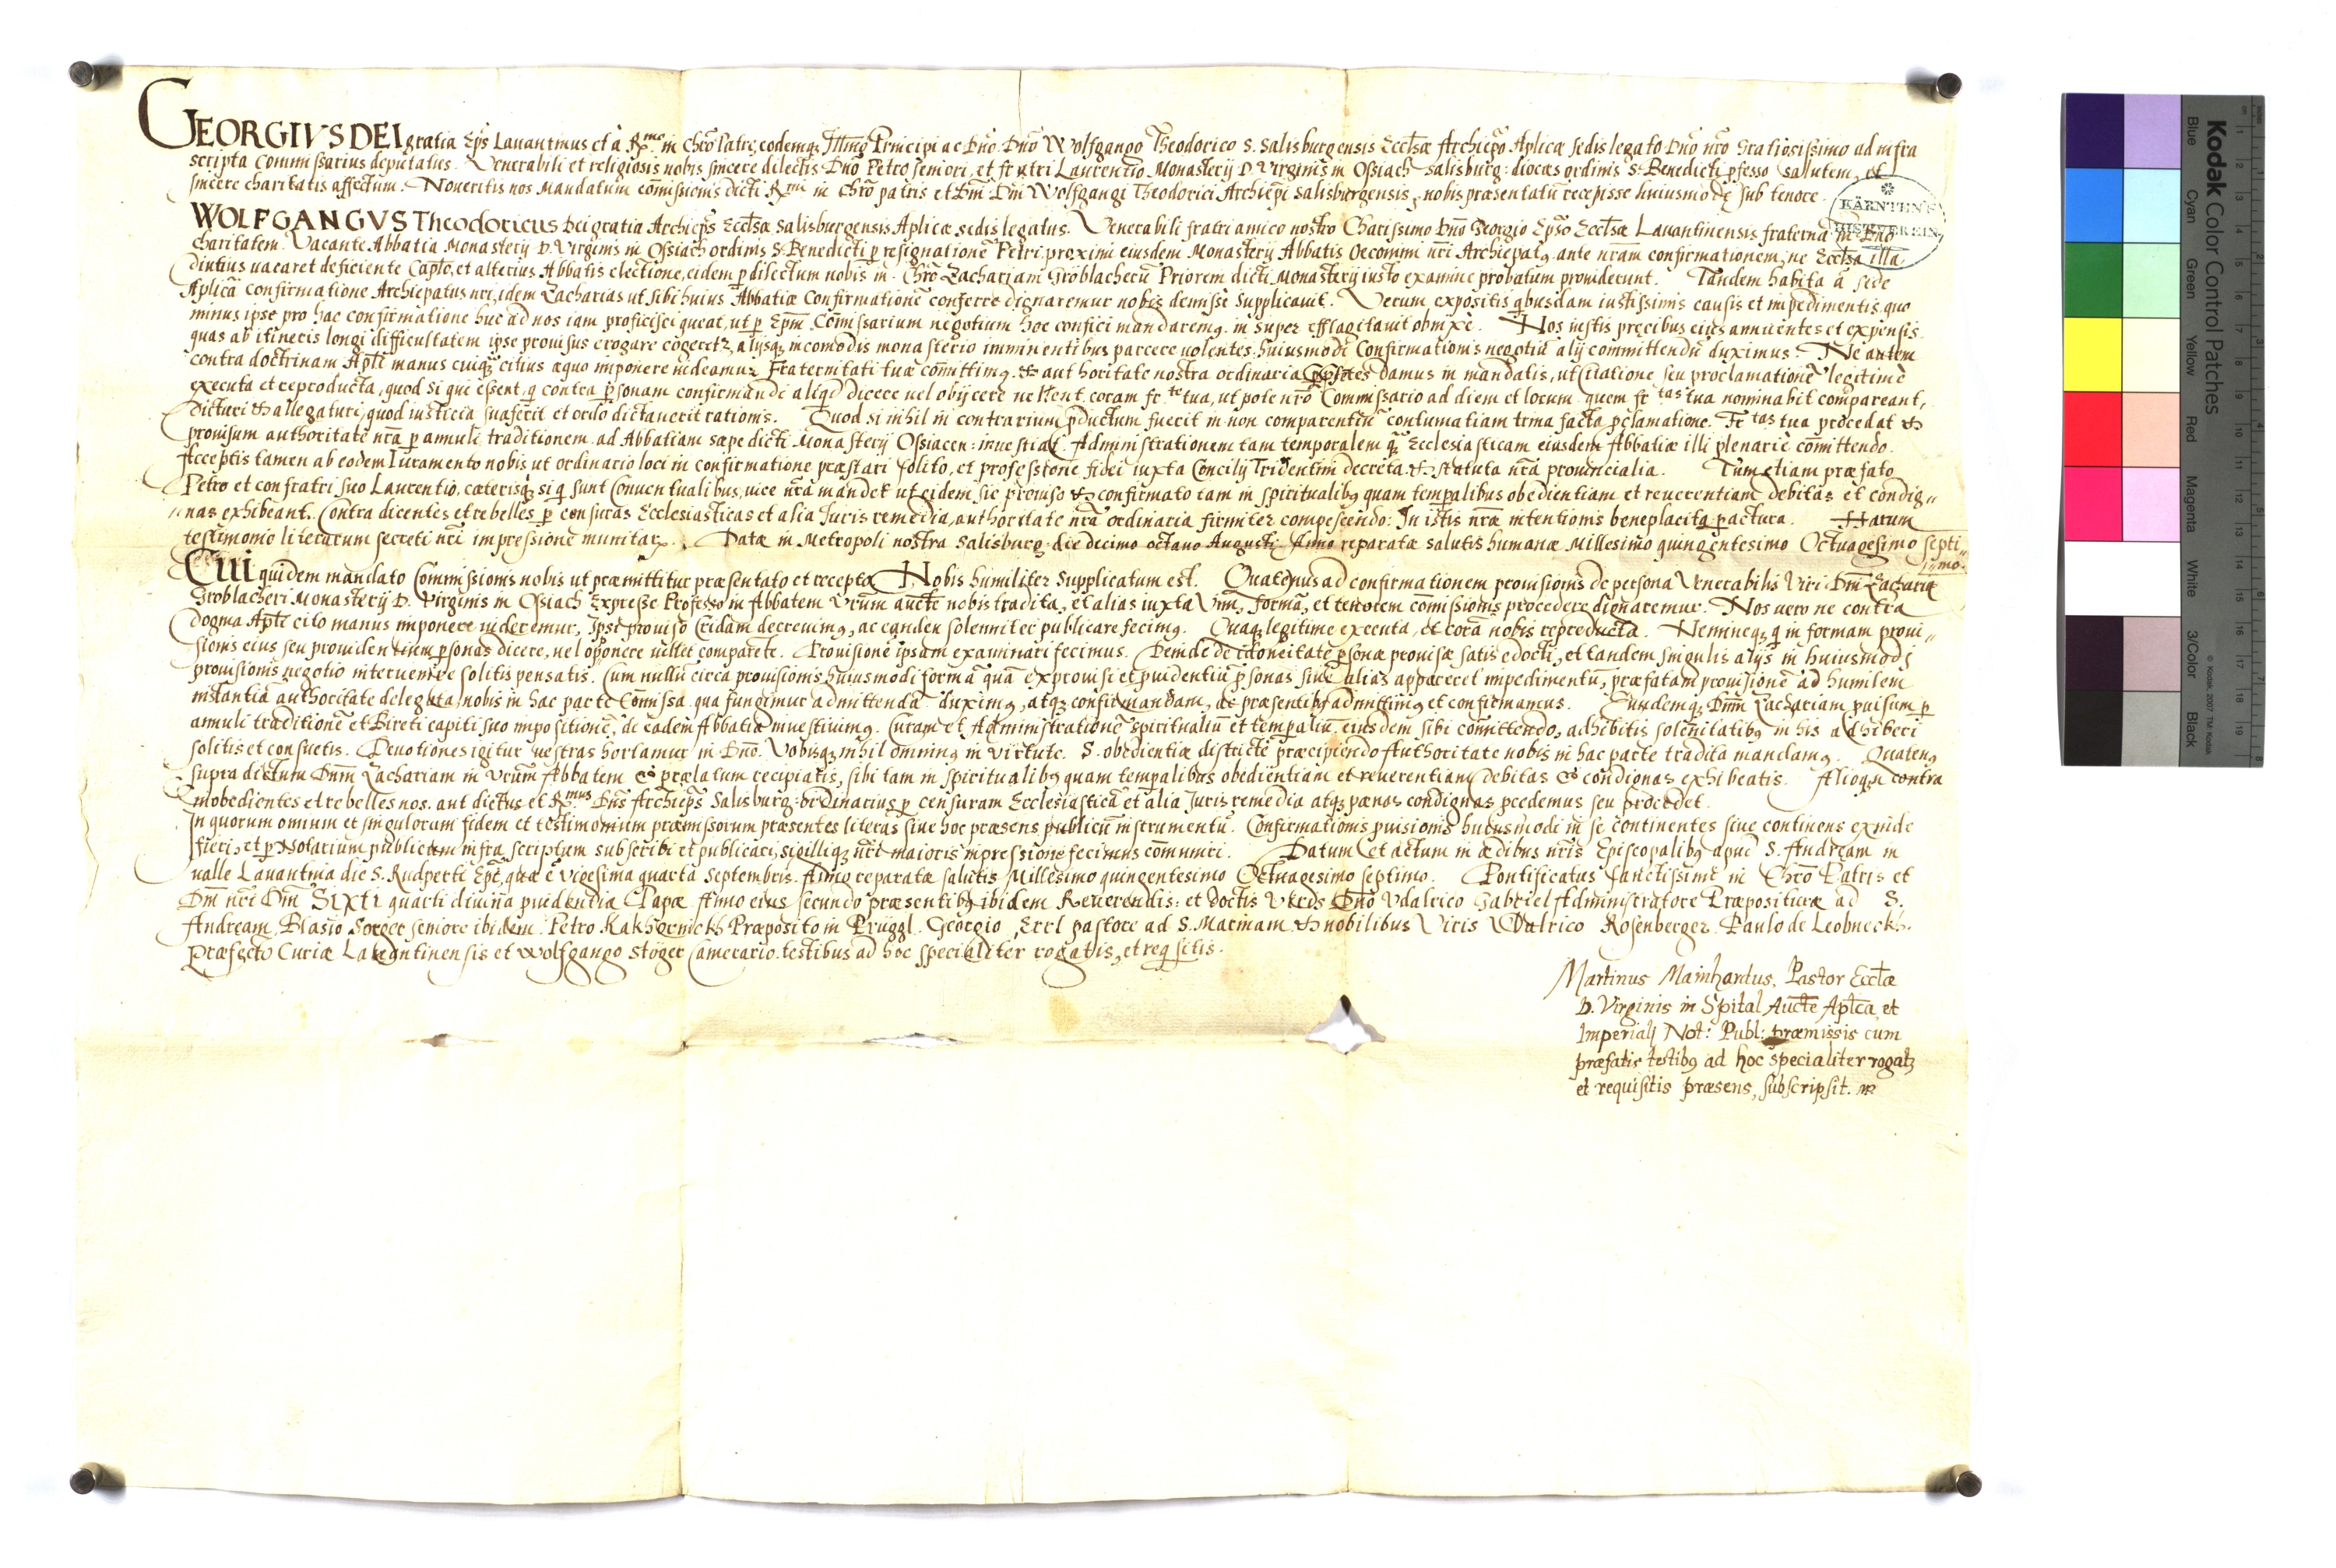 GEORGIVS DEI gratia Eps̃ Lauantinus et à Rmo in Chrõ Patre, eodemq; Illmo Principi ac Dnõ Dnõ Wolfgango Theodorico S. Salisburgensis Ecclsæ Archiepõ Aplicæ sedis legato Dnõ nrõ Gratiosissimo ad infra
scripta Commissarius deputatus. Venerabili et religiosis nobis sincere dilectis Dnõ Petro seniori, et fratri Laurentio Monasterij D. Virginis in Ossiach Salisburg: diocæs ordinis S. Benedicti pfesso salutem, et
sincere charitatis affectum. Noueritis nos Mandatum comissionis dicti Rmi in Chrõ patris et Dnĩ Dnĩ Wolfgangi Theodorici Archiepĩ Salisburgensis, nobis præsentatũ recepisse huiusmodi sub tenore.
WOLFGANGVS Theodoricus Dei gratia Archieps̃ Ecclsæ Salisburgensis Aplicæ sedis legatus. Venerabili fratri amico nostro Charissimo Dnõ Georgio Epsõ Ecclsæ Lauantinensis fraternã in Dnõ
charitatem. Vacante Abbatia Monasterij D. Virginis in Ossiach ordinis S. Benedicti p resignationẽ Petri proximi eiusdem Monasterij Abbatis Oeconimi nri Archiepatq ante nrãm confirmationem, ne Ecclsa illa
diutius uacaret deficiente Caplo, et alterius Abbatis electione, eidem p dilectum nobis in Chrõ Zachariam Gröblacherũ Priorem dicti Monasterij iusto examine probatum prouiderunt. Tandem habita â sede
Aplica confirmatione Archiepatus nri, idem Zacharias ut sibi huius Abbatiæ Confirmationẽ conferre dignaremur nobis demisse supplicauit. Verum expositis qbusdam iustissimis causis et impedimentis, quo
minus ipse pro hac confirmatione huc ad nos iam proficisci queat, ut p Epm̃ Comissarium negotium hoc confici mandaremq. in super efflagitauit obnixè. Nos iustis precibus eius annuentes et expensis
quas ab itineris longi difficultatem ipse prouisus erogare cogeretz, alijsq incomodis monasterio imminentibus parcere uolentes huiusmodi Confirmationis negotiũ alij committendũ duximus. Ne autem
contra doctrinam Apli manus cuiq citius æquo imponere uideamur Fraternitati tuæ comittimq. & authoritate nostra ordinaria damus in mandatis, ut Citatione seu proclamationẽ legitimè
executa et reproducta, quod si qui essent, q contra psonam confirmandi aliqd dicere uel obijcere uellent, coram fr.te tua, ut pote nrõ Commissario ad diem et locum quem fr.tas tua nominabit compareant,
dicturi & allegaturi, quod iusticia suaserit et ordo dictauerit rationis. Quod si nihil in contrarium pductum fuerit in non comparentiũ contumatiam trina facta pclamatione. Fr.tas tua procedat &
prouisum authoritate nrã p annuli traditionem ad Abbatiam sæpe dicti Monasterij Ossiacen: inuestiat. Administrationem tam temporalem q Ecclesiasticam eiusdem Abbatiæ illi plenariè comittendo.
Acceptis tamen ab eodem Iuramento nobis ut ordinario loci in confirmatione præstari solito, et professione fidei iuxta Concilij Tridentini decreta & statuta nrã prouincialia. Tum etiam præfato
Petro et confratri suo Laurentio, cæterisq si q sunt Conuentualibus, uice nrã mandet ut eidem sic prouiso & confirmato tam in spiritualibq quam tempalibus obedientiam et reuerentiam debitas et condig„
„nas exhibeant. Contra dicentes et rebelles p censuras Ecclesiasticas et alia Iuris remedia, authoritate nrã ordinaria firmiter compescendo. In istis nræ intentionis beneplacita pactura. Harum
testimonio literarum secreti nri impressione munitar. Datæ in Metropoli nostra Salisburg: die decimo octauo Augusti Anno reparatæ salutis humanæ Millesimo quingentesimo Octuagesimo septi„
„mo.
Cui quidem mandato Commissionis nobis ut præmittitur præsentato et recepto Nobis humiliter supplicatum est. Quatenus ad confirmationem prouisionis de persona Venerabilis Viri Dnĩ Zachariæ
Gröblacheri Monasterij D. Virginis in Ossiach Expresse Professo in Abbatem Vrũm aucte nobis tradita, et alias iuxta Vim, formã, et tenorem comissionis procedere dignaremur. Nos uero ne contra
dogma Apli cito manus imponere uideremur, Ipse prouiso Cridam decreuimq, ac eandem solenniter publicare fecimq. Quaq legitime executa, et corã nobis reproducta. Nemineq q in formam proui„
sionis eius seu prouidentium psonas dicere, uel oponere uellet comparete. Prouisionẽ ipsam examinari fecimus. Deinde de idoneitate psonæ prouisæ satis edocti, et tandem singulis alijs in huiusmodi
prouisionis negotio interuenire solitis pensatis. Cum nullũ circa prouisionis huiusmodi formã quã ex prouisi et puidentiũ psonas siue alias appareret impedimentũ, præfatam prouisionẽ ad humilem
instantiã authoritate delegata nobis in hac parte Comissa qua fungimur admittendã duximq, atq confirmandam, de præsentibq admittimq et confirmamus. Eundemq Dnm̃ Zachariam puisum p
annuli traditionẽ et Bireti capiti suo impositionẽ, de eadem Abbatia inuestiuimq. Curam et Administrationẽ spiritualiũ et tempaliũ eiusdem sibi comittendo, adhibitis solenitatibq in his adhiberi
solitis et consuetis. Deuotiones igitur uestras hortamur in Dnõ. Vobisq nihil ominus in virtute S. obedientiæ districtè præcipiendo Authoritate nobis in hac parte tradita mandamq. Quatenq
supra dictum Dnm̃ Zachariam in Vrũm Abbatem & prælatum recipiatis, sibi tam in spiritualibq quam tempalibus obedientiam et reuerentiam debitas & condignas exhibeatis. Alioqn contra
inobedientes et rebelles nos. aut dictus et Rmus Dnũs Archieps̃ Salisburg: ordinarius p censuram Ecclesiasticã et alia Iuris remedia atq pœnas condignas pcedemus seu procedet.
In quorum omium et singulorum fidem et testimonium præmissorum præsentes literas siue hoc præsens publicũ instrumentũ. Confirmationis puisionis huiusmodi in se continentes siue continens exinde
fieri, et p Notarium publicum infra scriptum subscribi et publicari, sigilliq nri maioris impressione fecimus comuniri. Datum et actum in ædibus nris Episcopalibq apud S. Andream in
ualle Lauantina die S. Rudperti Epĩ, quæ ẽ vigesima quarta Septembris. Anno reparatæ salutis Millesimo quingentesimo Octuagesimo septimo. Pontificatus Sanctissimi in Chrõ Patris et
Dnĩ nri Dnĩ Sixti quarti diuina puidentia Papæ Anno eius secundo præsentibq ibidem Reuerendis: et doctis Viris Dnõ Vdalrico Gabriel Administratore Præpositura ad S.
Andream, Blasio Sorger seniore ibidem. Petro Kakhornickh Præposito in Prüggl. Georgio Errl pastore ad S. Marinam & nobilibus Viris Vdalrico Rosenberger. Paulo de Leobneckh.
Præfecto Curiæ Lauantinensis et Wolfgango Stöger Camerario. testibus ad hoc specialiter rogatis, et reqsitis.
Martinus Mainhardus, Pastor Ecclæ
D. Virginis in Spital Aucte Aplca, et
Imperialj Not: Publ: præmissis cum
præfatis testibq ad hoc specialiter rogatz
et requisitis præsens, subscripsit.
KÄRNTEN'S
HIST. VEREIN
Kodak Color Control Patches
Blue Cyan Green Yellow Red Magenta White 3/Color Black
© Kodak, 2007 TM: Kodak